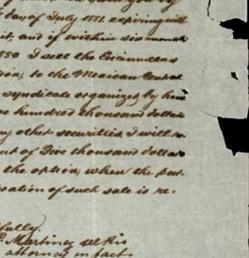 day of July 1881. expiring with
it, and if within six months
1880 I sell the Encinillas
to the Mexican Central
syndicate organized by him
hundred thousand dollars
any other securities I will re-
of Five thousand dollars
the option, when the
of such sale is re-
Martinez
attorney in fact